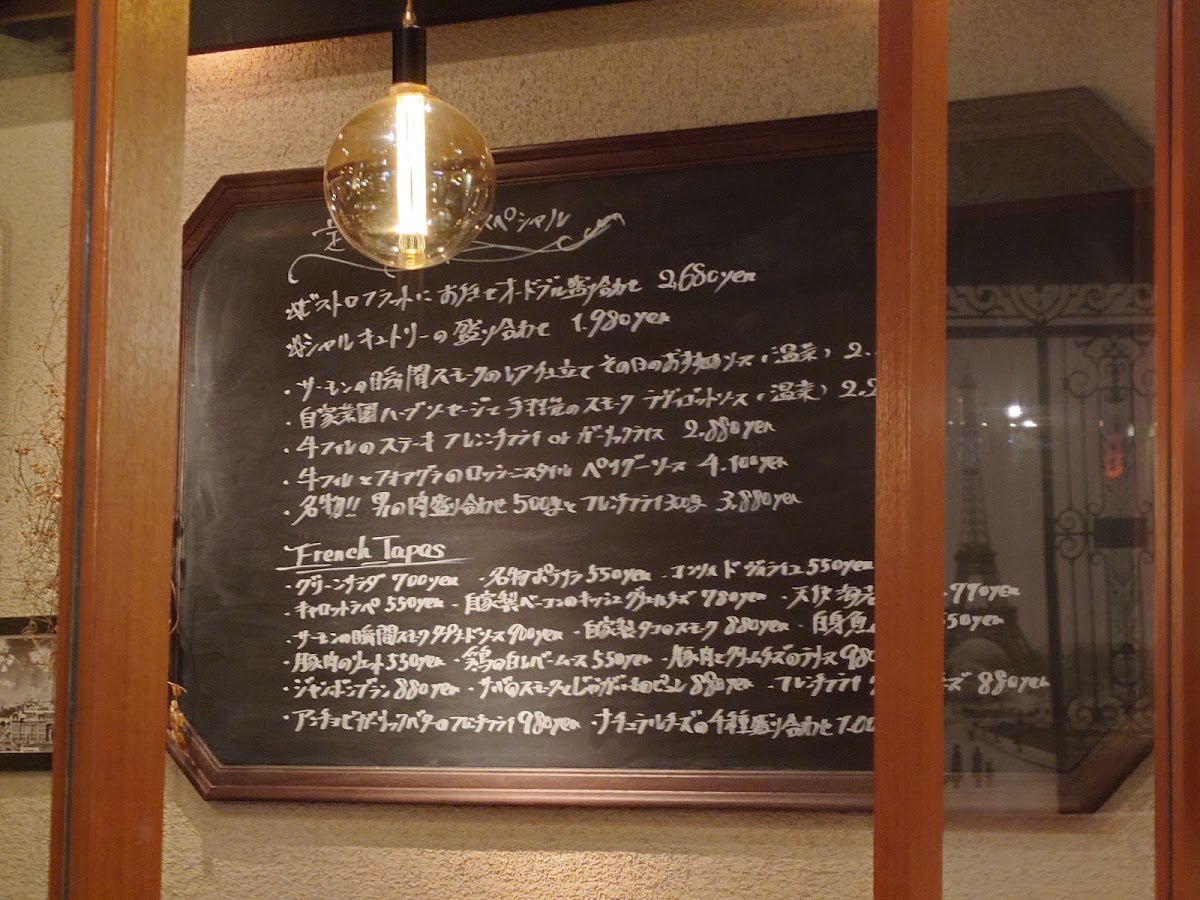 定 スペシャル
※ビストロフラットに お任せオードブル盛り合わせ 2,680yen
※シャルキュトリーの盛り合わせ 1,980yen
・サーモンの瞬間スモークのレア仕立て その日のおすすめソース（温菜）2.
・自家菜園ハーブソーセージと手羽先のスモーク ラヴィゴットソース（温菜）2.2
・牛フィレのステーキ フレンチフライ or ガーリックライス 2,880yen
・牛フィレとフォアグラのロッシーニスタイル ペリグーソース 4,100yen
・名物!! 男の肉盛り合わせ500gとフレンチフライ300g 3,880yen
French Tapas
・グリーンサラダ 700yen ・名物ポテサラ 550yen ・コンソメ ド ヴォライユ 550yen
・キャロットラペ 550yen ・自家製ベーコンのキッシュ グリュエルチーズ 780yen ・天使海老 770yen
・サーモンの瞬間スモーク ソース 900yen ・自家製タコのスモーク 880yen ・白身魚 50yen
・豚肉のリエット 550yen ・鶏の白レバームース 550yen ・豚肉とクリームチーズのテリーヌ 980
・ジャンボンブラン 880yen ・サバのスモークとじゃがいものピュレ 880yen ・フレンチフライ ーズ 880yen
・アンチョビガーリックバターのフレンチフライ 980yen ・ナチュラルチーズの4種盛り合わせ 1.00